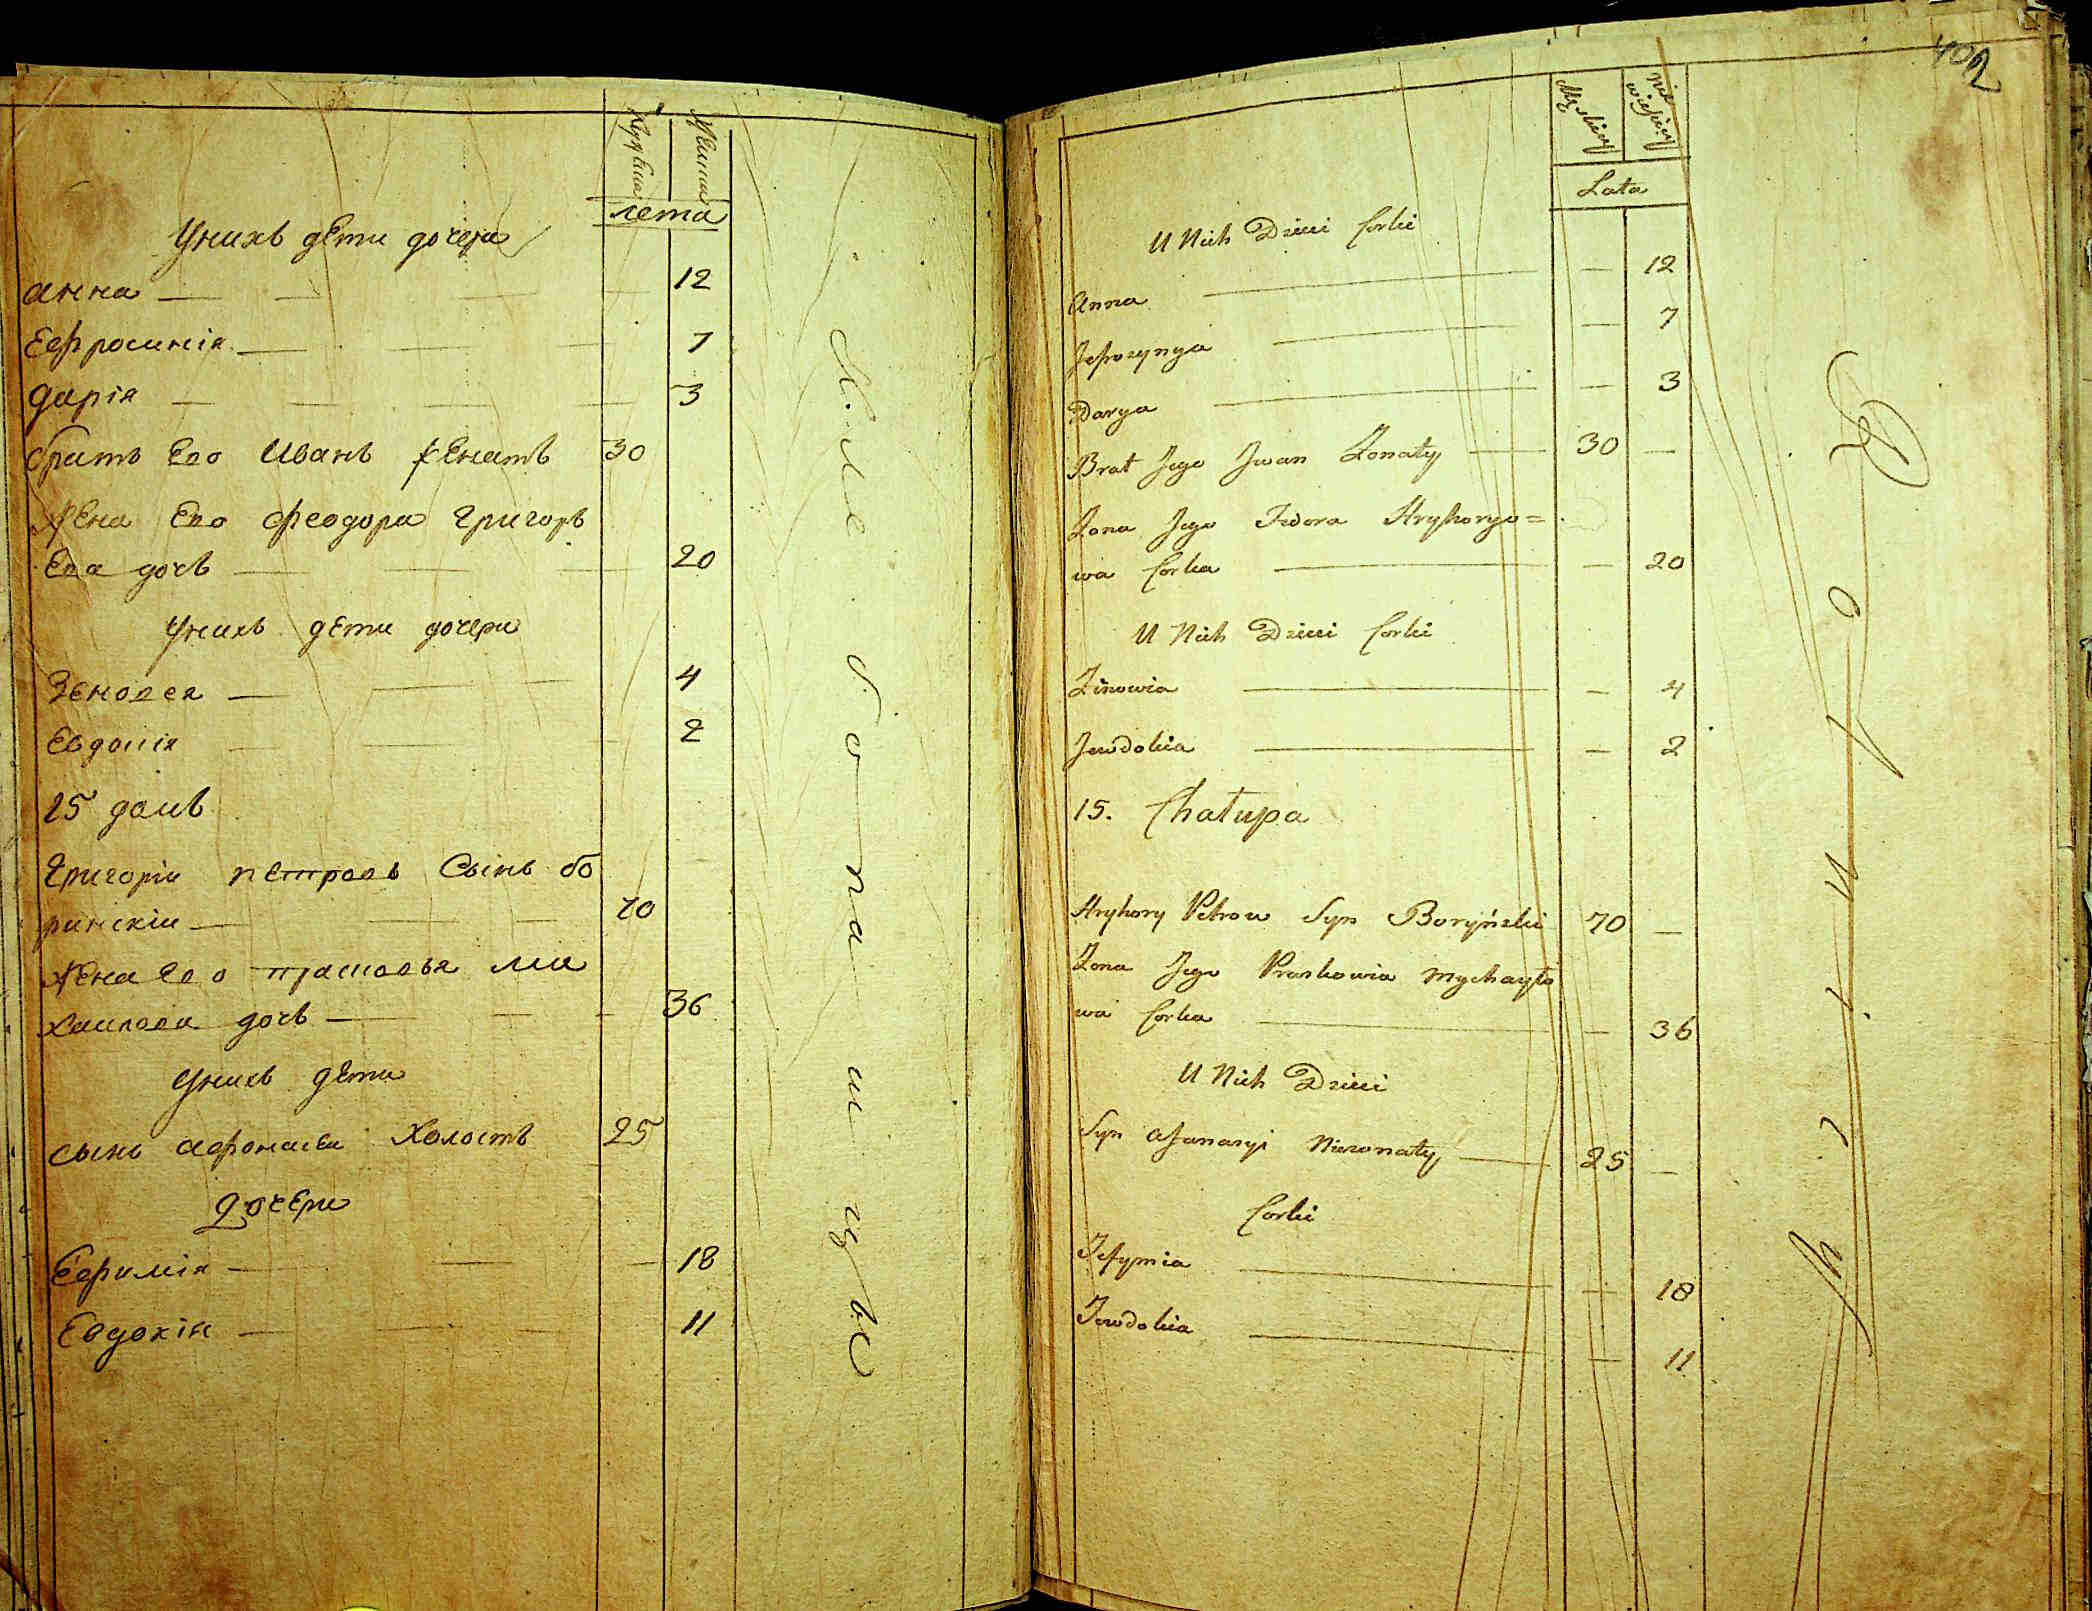 Мужеска
Женска
лета
Унихъ дети дочери
анна 12
Ефросинія 7
дарія 3
братъ Его Иванъ жЕнатъ 30
жЕна Его феодора григорь
Ева дочъ 20
Унихъ дети дочери
Зеновея 4
Евдокія 2
15 домъ
григорій пЕтровъ Сынъ бо
ринскій 70
жЕна Его прасковья ми
хайлова дочъ 36
Унихъ дети
сынъ афонасЕй Холостъ 25
дочЕри
Ефимія 18
Евдокія 11
402
Męskiey
Nie wieskiey
Lata
U Nich Dzieci Corki
Anna — 12
Jefrozynya — 7
Darya — 3
Brat Jego Jwan Żonaty 30 —
Żona Jego Fedora Hryhoryo=
wa Corka — 20
U Nich Dzieci Corki
Zinowia — 4
Jewdokia — 2
15. Chałupa
Hryhory Petrow Syn Boryński 70 —
Żona Jego Praskowia Mychayło
wa Corka — 36
U Nich Dzieci
Syn Afanasyi Nieżonaty 25 —
Corki
Jefymia — 18
Jewdokia — 11